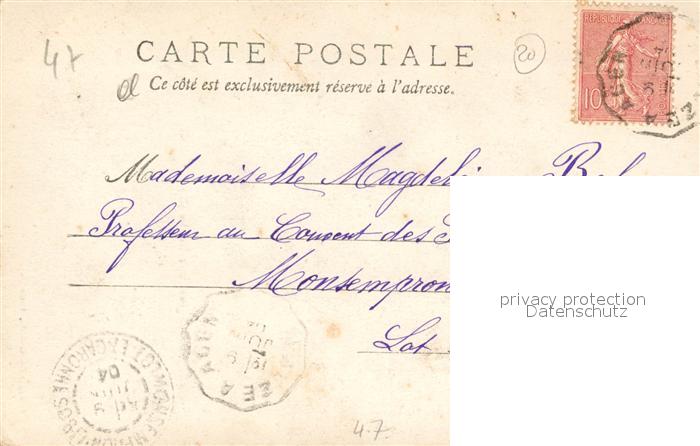 47
CARTE POSTALE
20
Ce côté est exclusivement réservé à l'adresse.
RÉPUBLIQUE FRANÇAISE
10
Mademoiselle
Professeur au Couvent des
Monsempron
Lot
privacy protection
Datenschutz
04
47